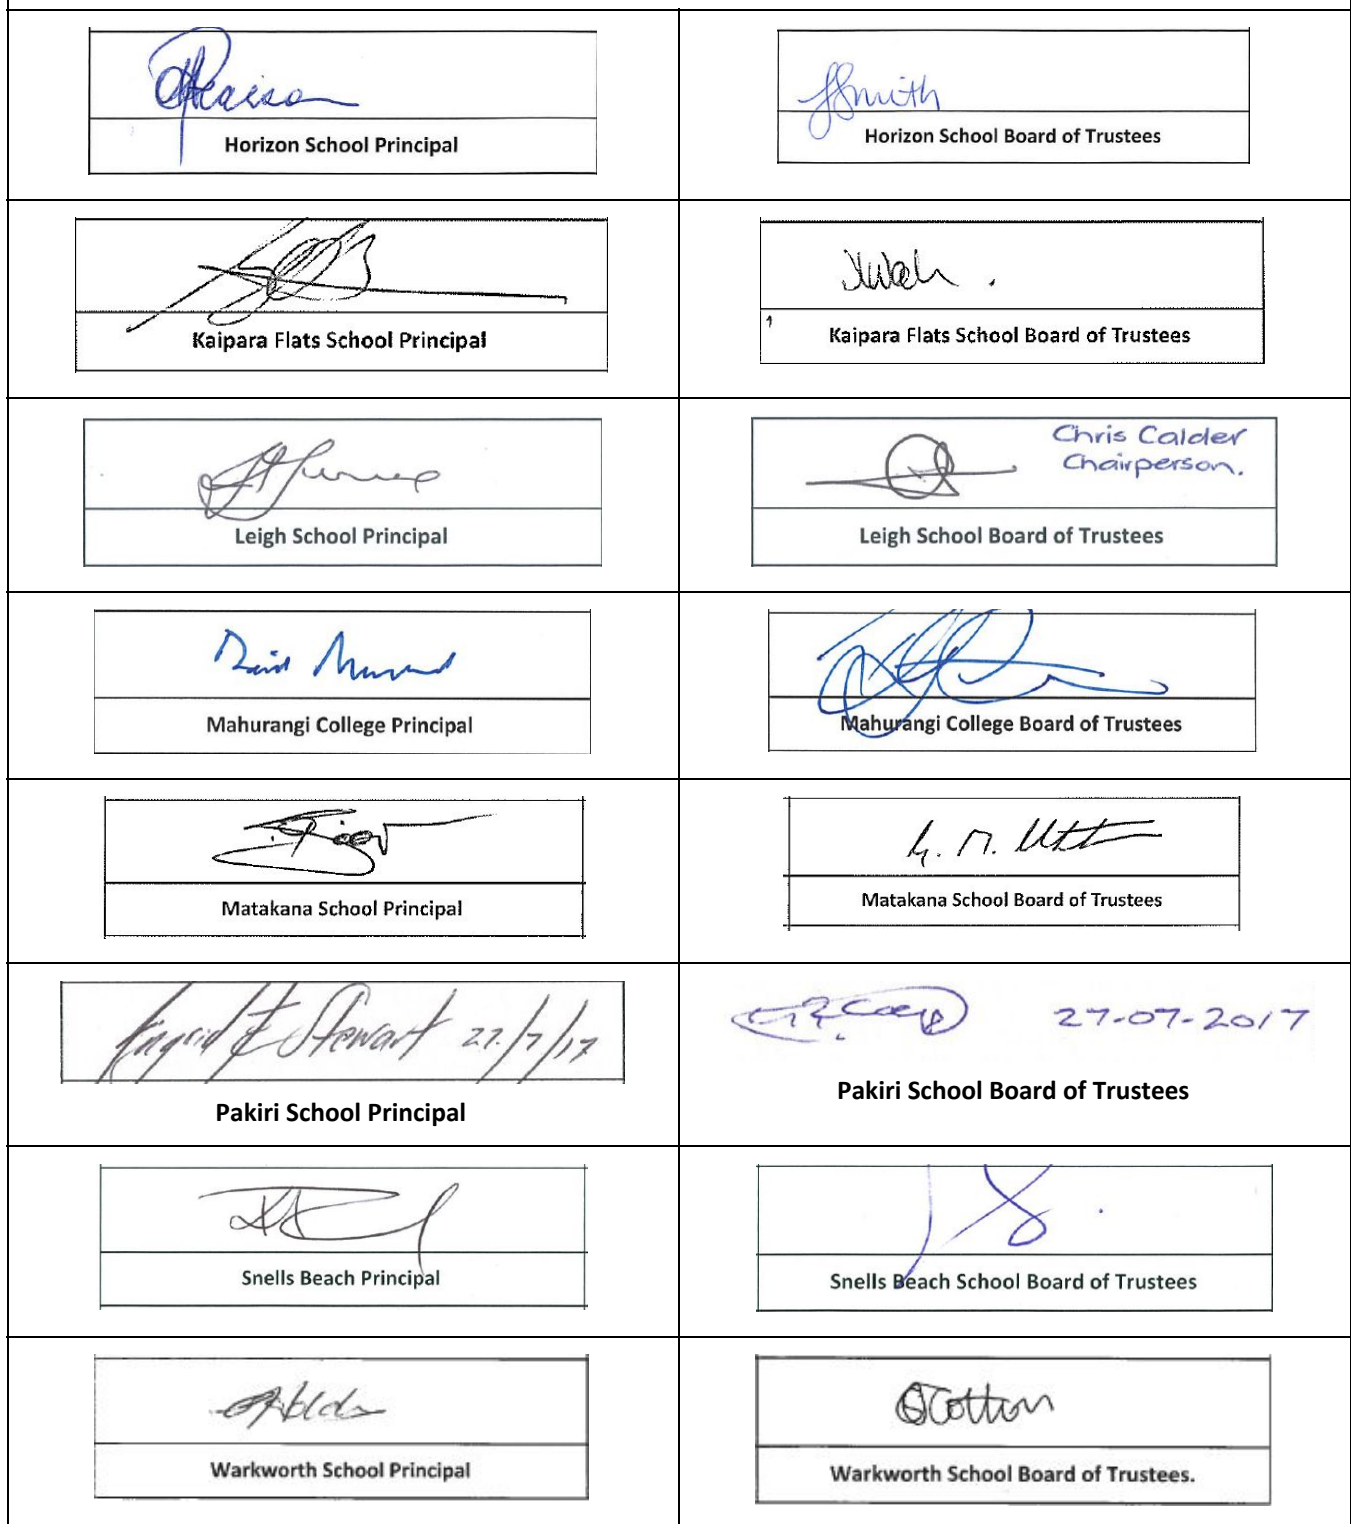 Horizon School Principal
Smith
Horizon School Board of Trustees
Kaipara Flats School Principal
Kaipara Flats School Board of Trustees
Chris Calder
Chairperson.
Leigh School Principal
Leigh School Board of Trustees
Mahurangi College Principal
Mahurangi College Board of Trustees
Matakana School Principal
Matakana School Board of Trustees
Ingrid E Stewart 27/7/17
27-07-2017
Pakiri School Principal
Pakiri School Board of Trustees
Snells Beach Principal
Snells Beach School Board of Trustees
Cotton
Warkworth School Principal
Warkworth School Board of Trustees.